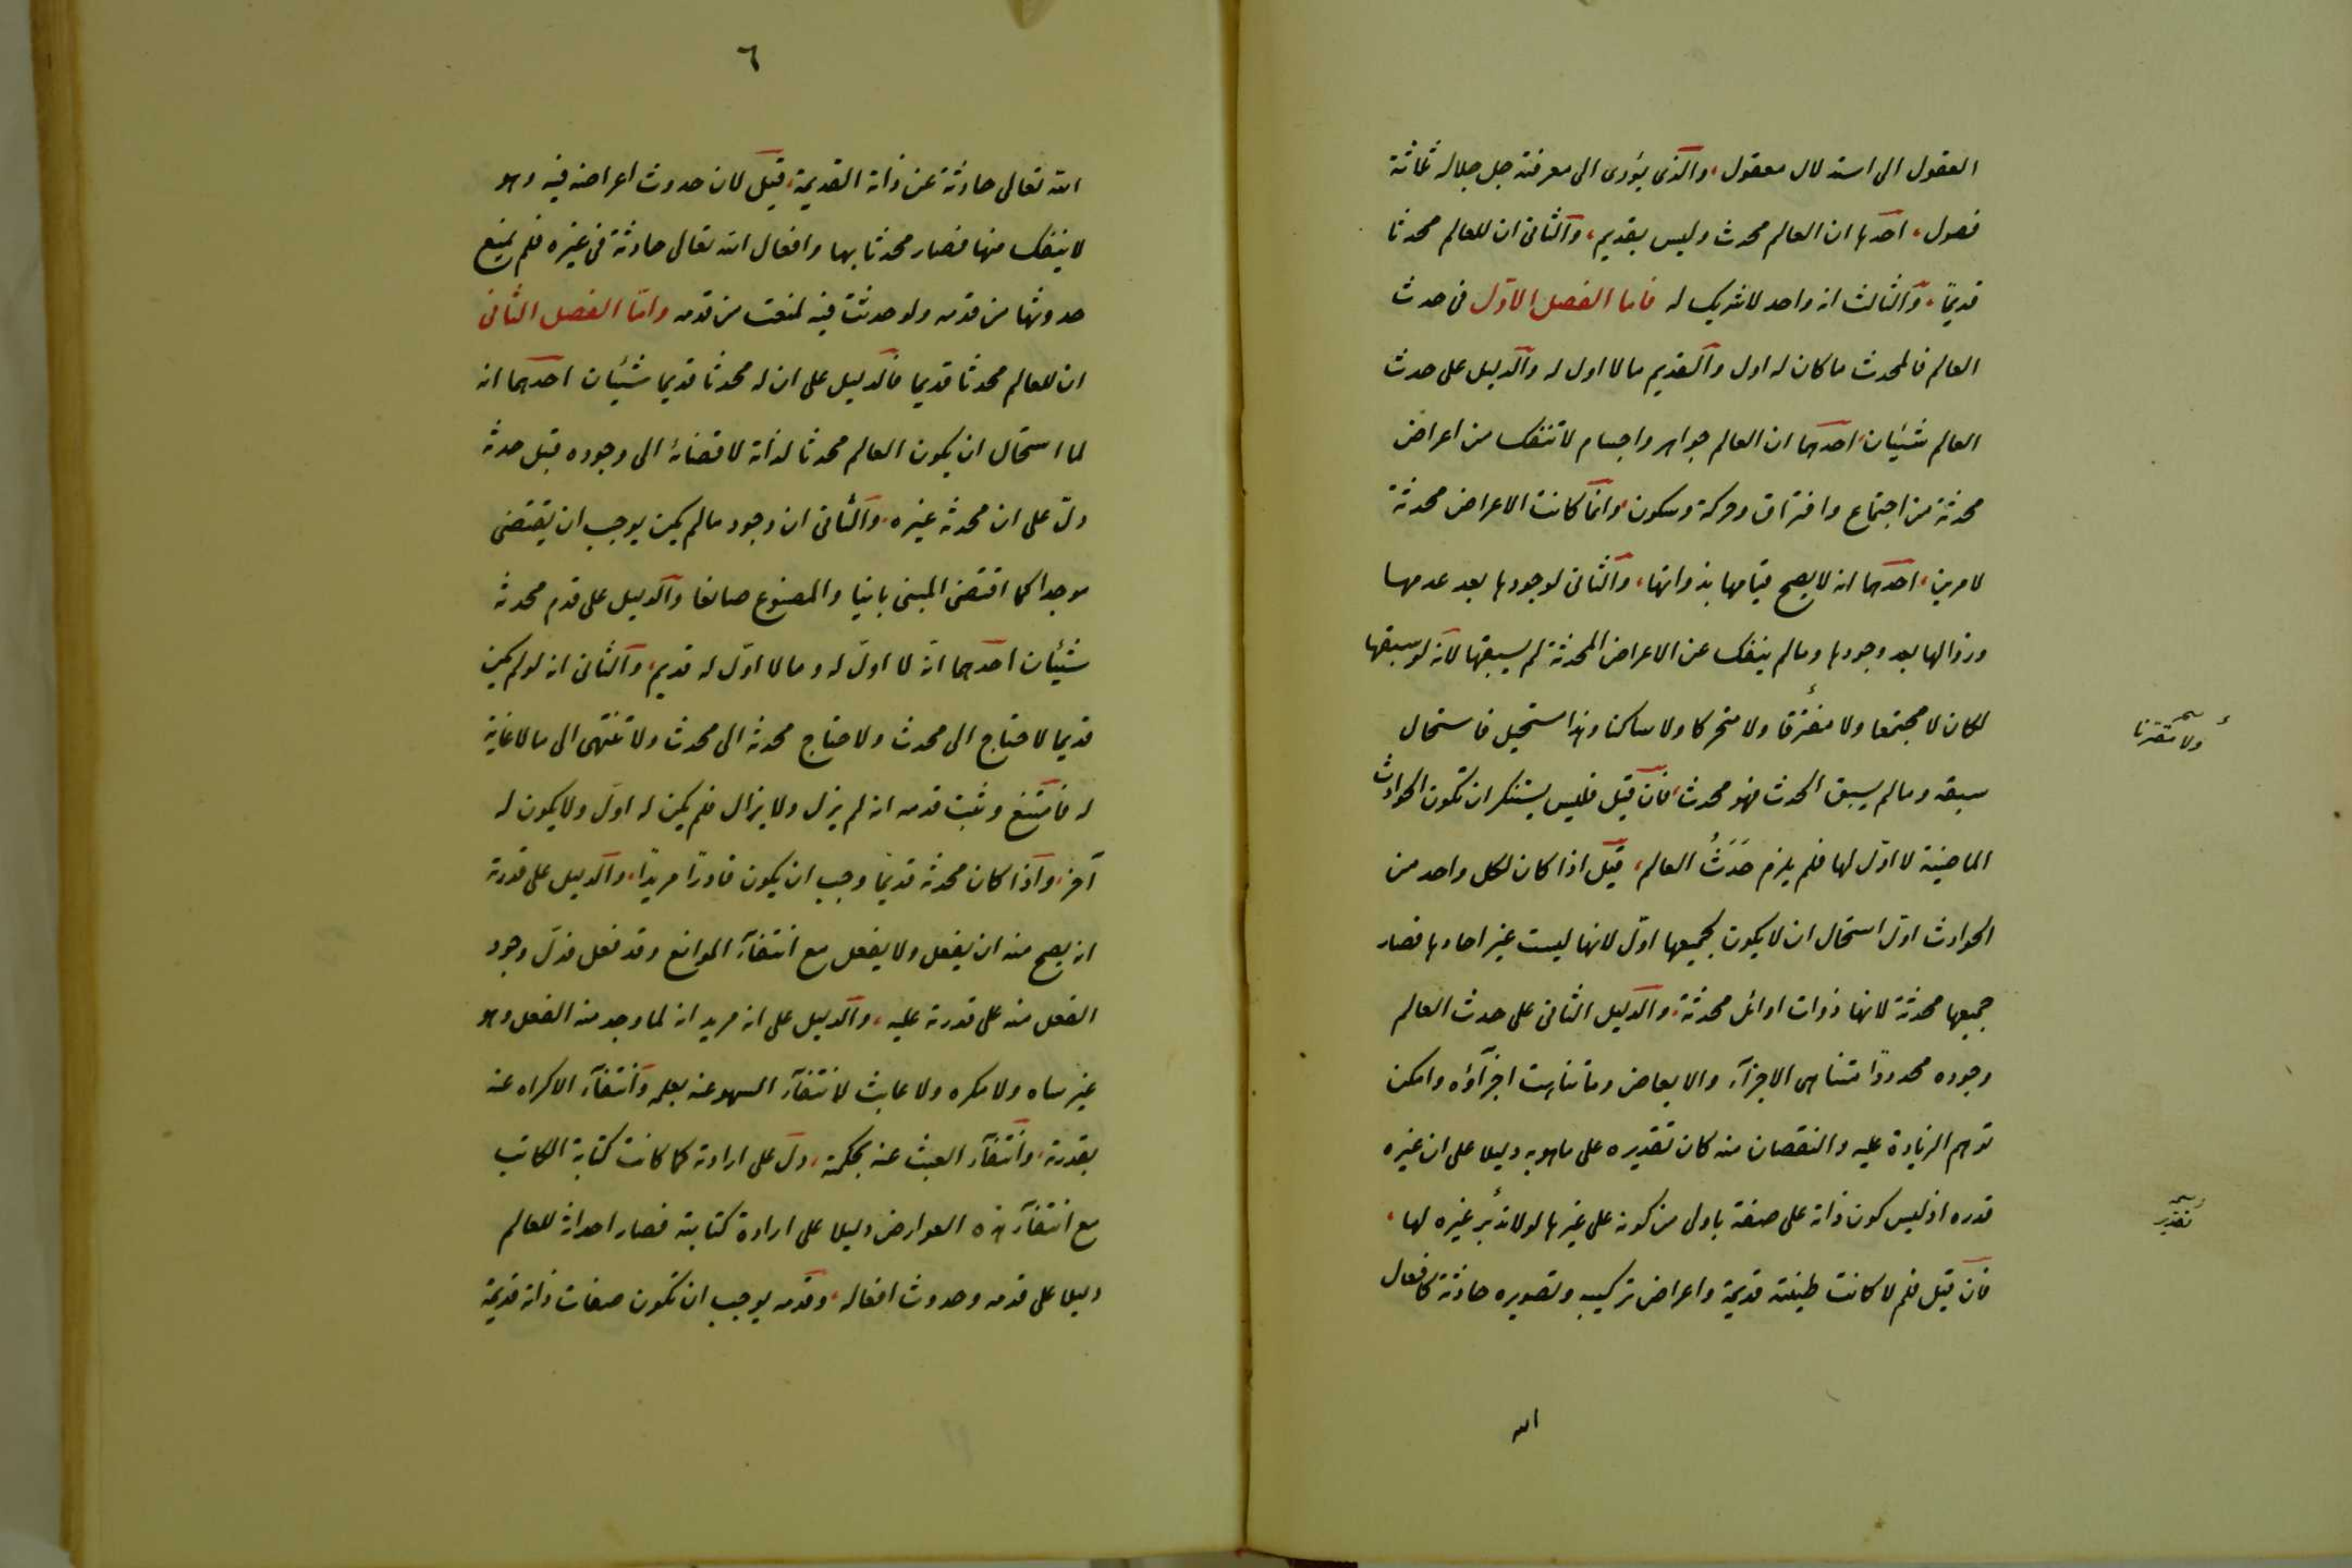 العقول الى استدلال معقول، والذى يؤدى الى معرفته جل جلاله ثلاثة
فصول، احدها ان العالم محدث وليس بقديم، والثانى ان للعالم محدثا
قديمًا، والثالث انه واحد لا شريك له فاما الفصل الاوّل فى حدث
العالم فالمحدث ما كان له اول والقديم ما لا اول له والدليل على حدث
العالم شيئان احدهما ان العالم جواهر واجسام لا تنفك من اعراض
محدثة من اجتماع وافتراق وحركة وسكون، وانما كانت الاعراض محدثة
لامرين، احدهما انه لا يصح قيامها بذواتها، والثانى لوجودها بعد عدمها
وزوالها بعد وجودها وما لم ينفك عن الاعراض المحدثة لم يسبقها لانّه لو سبقها
لكان لا مجتمعا ولا مفترقا ولا متحركا ولا ساكنا وهذا مستحيل فاستحال
ولا متفرقا
سبقه وما لم يسبق المحدث فهو محدث، فان قيل فليس يستنكر ان تكون الحوادث
الماضية لا اوّل لها فلم يلزم حَدَثُ العالم، قيل اذا كان لكل واحد من
الحوادث اوّل استحال ان لا يكون لجميعها اوّل لانها ليست غير احادها فصار
جميعها محدثة لانها ذوات اوائل محدثة، والدليل الثانى على حدث العالم
وجوده محدودًا متناهى الاجزآء والابعاض وما تناهت اجزآؤه وامكن
توهم الزيادة عليه والنقصان منه كان تقديره على ما هو به دليلا على ان غيره
قدره اذ ليس كون ذاته على صفة باولى من كونه على غيرها لولا تدبر غيره لها،
تقدير
فان قيل فلم لا كانت طينته قديمة واعراض تركيبه وتصويره حادثة كافعال
الله
٦
الله تعالى حادثة عن ذاته القديمة، قيل لان حدوث اعراضه فيه وهو
لا ينفك منها فصار محدثا بها وافعال الله تعالى حادثة فى غيره فلم يمنع
حدوثها من قدمه ولو حدثت فيه لمنعت من قدمه وامّا الفصل الثانى
ان للعالم محدثا قديما فالدليل على ان له محدثا قديما شيئان احدهما انه
لما استحال ان يكون العالم محدثا لذاته لاقتضائه الى وجوده قبل حدثه
دلّ على ان محدثه غيره، والثانى ان وجود ما لم يكن يوجب ان يقتضى
موجدا كما اقتضى المبنى بانيا والمصنوع صانعا والدليل على قدم محدثه
شيئان احدهما انّه لا اوّل له وما لا اوّل له قديم، والثانى انه لو لم يكن
قديما لاحتاج الى محدث ولاحتاج محدثه الى محدث ولا تنتهى الى ما لا غاية
له فامتنع وثبت قدمه انه لم يزل ولا يزال فلم يكن له اوّل ولا يكون له
آخر، واذا كان محدثه قديمًا وجب ان يكون قادرًا مريدًا، والدليل على قدرته
انه يصح منه ان يفعل ولا يفعل مع انتفآء الموانع وقد فعل فدلّ وجود
الفعل منه على قدرته عليه، والدليل على انه مريد انه لما وجد منه الفعل وهو
غير ساه ولا مكره ولا عابث لانتفآء السهو عنه بعلمه وانتفآء الاكراه عنه
بقدرته، وانتفآء العبث عنه بحكمته، دلّ على ارادته كما كانت كتابة الكاتب
مع انتفآء هذه العوارض دليلا على ارادة كتابته فصار احداثه للعالم
دليلا على قدمه وحدوث افعاله، وقدمه يوجب ان تكون صفات ذاته قديمة